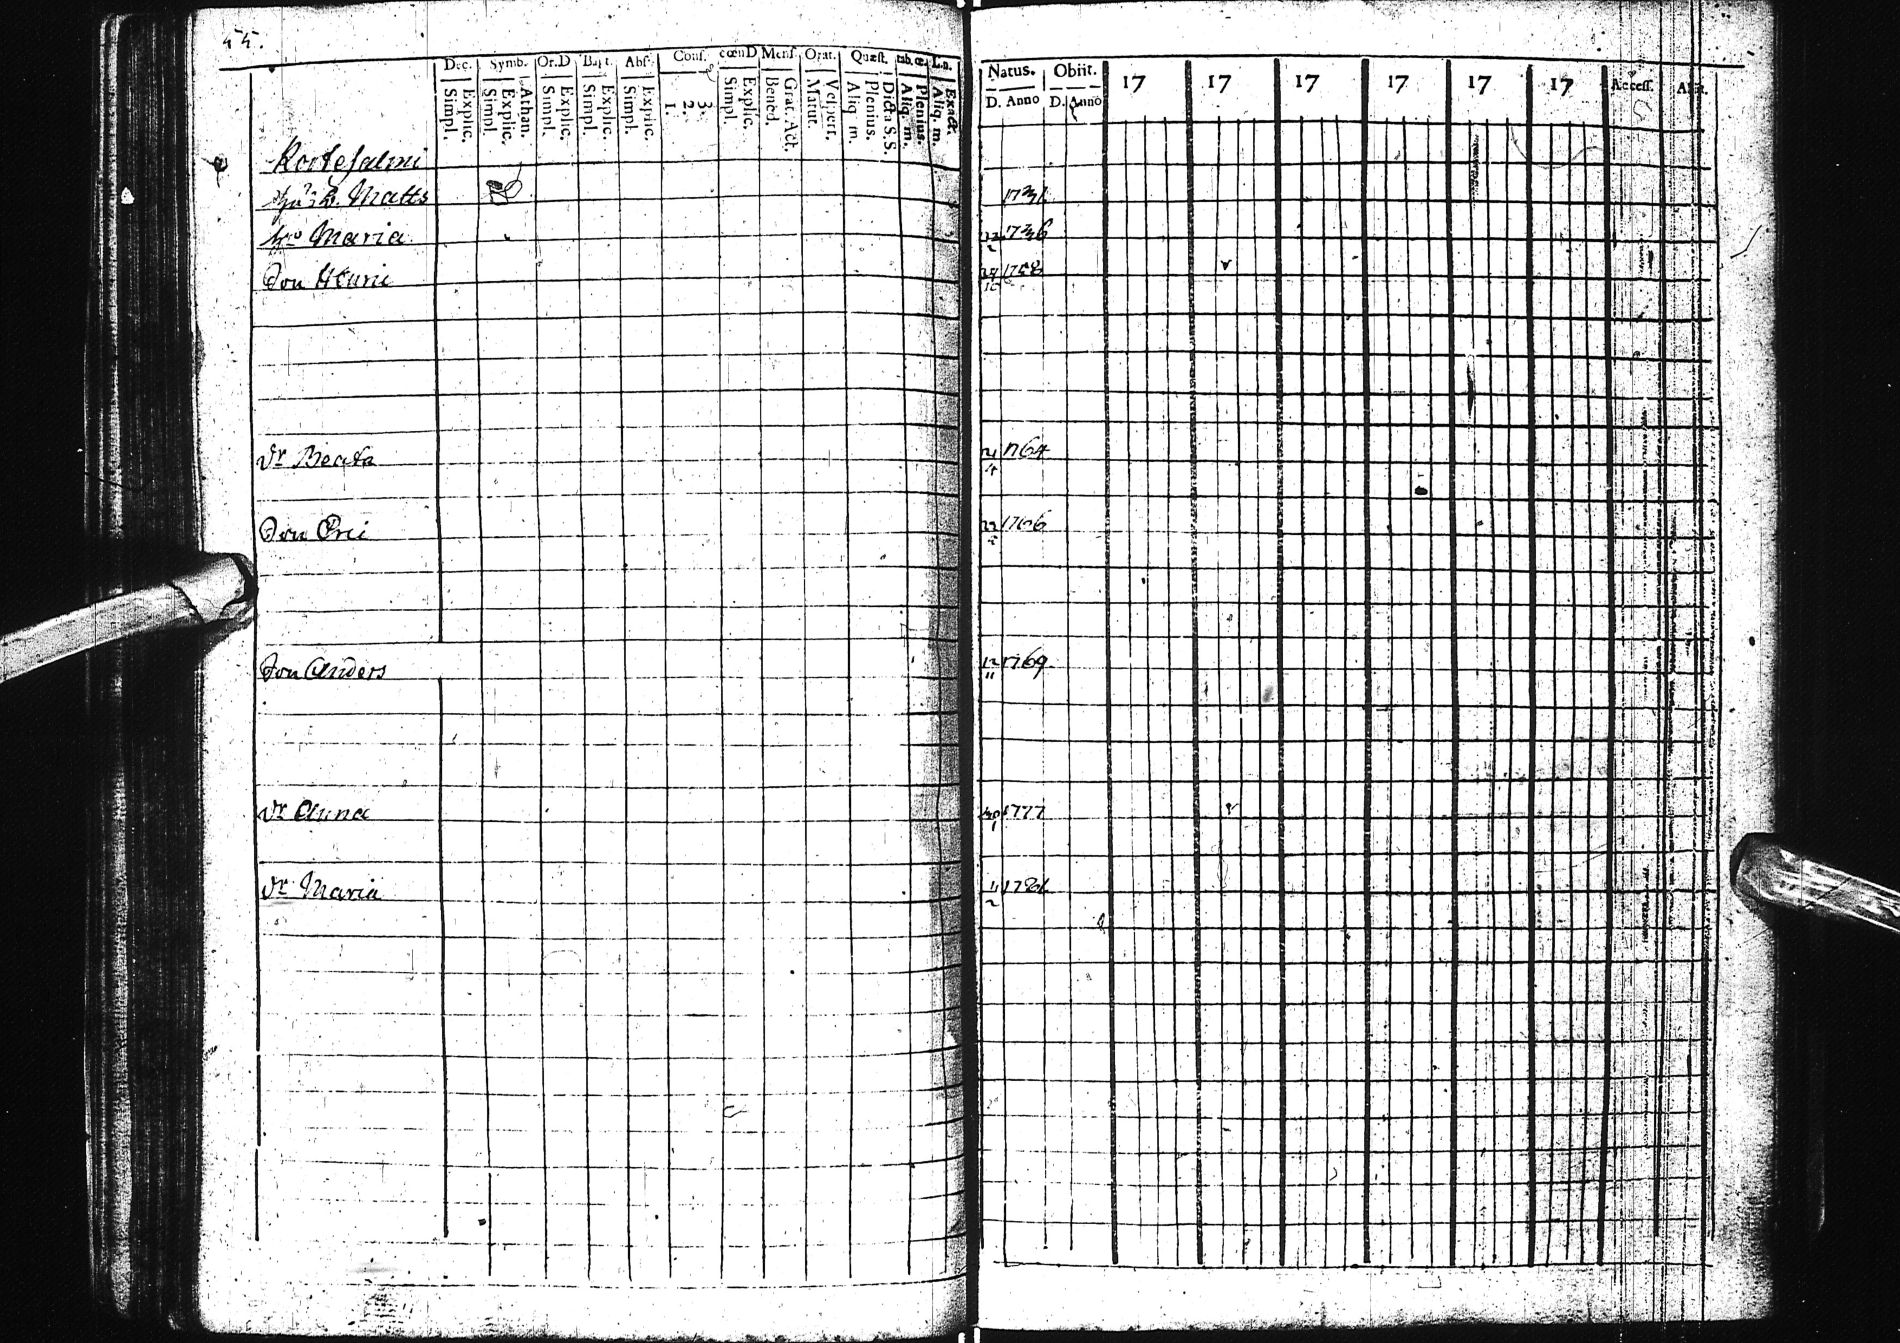 55.
Dec. Symb. Or.D Bapt. Abs. Conf. cœnD Mens. Orat. Quæst. tab.œ. L.n. Natus. Obiit. 17 17 17 17 17 17 Access. Abit.
Simpl. Explic. Simpl. Explic. Athan. Simpl. Explic. Simpl. Explic. Simpl. Explic. 1. 2. 3. Simpl. Explic. Bened. Grat. Act. Matut. Vespert. Aliq. m. Plenius. Dicta S.S. Aliq. m. Plenius. Aliq. m. Exact. D. Anno D. Anno
Kortesalmi
Matts 1731
Maria 1736
Son Henric 1758
Dr Beata 21/4 1764
Son Eric 1766
Son Anders 12/11 1769
Dr Anna 1777
Dr Maria 1781